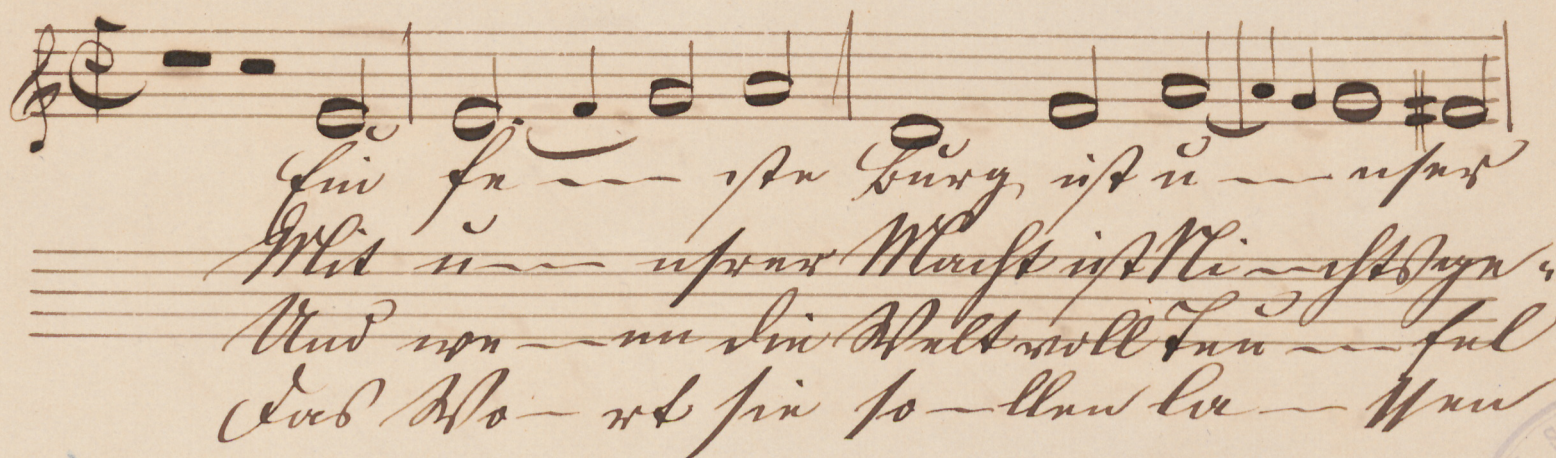 Ein fe — — ste Burg ist u — — nser
Mit u — — nsrer Macht ist Ni — chts ge-
Und we — nn die Welt voll Teu — — fel
Das Wo — rt sie so — llen la — ssen